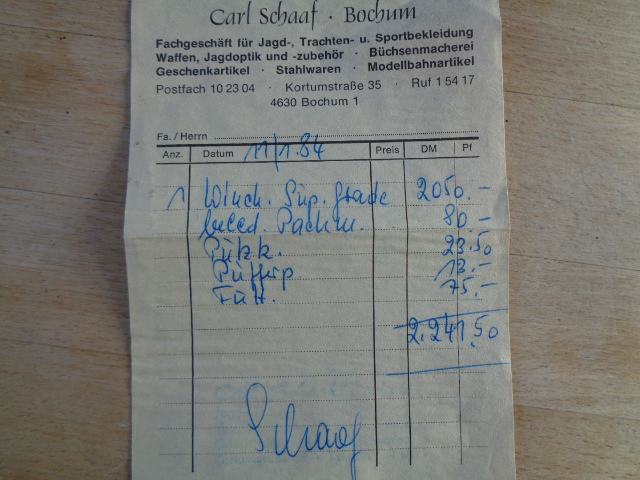 Carl Schaaf · Bochum
Fachgeschäft für Jagd-, Trachten- u. Sportbekleidung
Waffen, Jagdoptik und -zubehör · Büchsenmacherei
Geschenkartikel · Stahlwaren · Modellbahnartikel
Postfach 10 23 04 · Kortumstraße 35 · Ruf 1 54 17
4630 Bochum 1
Fa. / Herrn
Anz. Datum 11/1.84 Preis DM Pf
1 Winch. Sup. Grade 2050.-
80.-
23.50
13.-
75.-
2.241.50
Schaaf